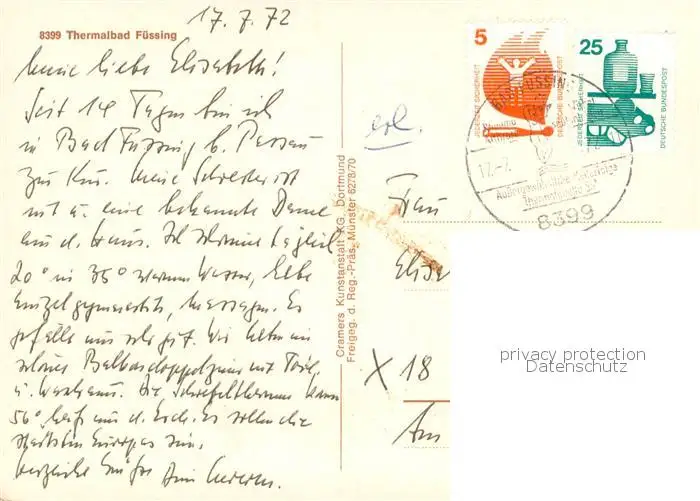 17. 7. 72
8399 Thermalbad Füssing
Meine liebe Elisabeth!
Seit 14 Tagen bin ich
in Bad Füssing b. Passau
zur Kur. Meine Schwester ist
mit u. eine bekannte Dame
aus d. Haus. Ich schwimme täglich
20° in 35° warmem Wasser,
Einzelgymnastik, Massagen. Es
gefällt uns sehr gut. Wir haben ein
schönes Balkondoppelzimmer mit Toil.
u. Waschraum. Die Schwefeltherme kommt
56° heiß aus d. Erde. Es sollen die
stärksten Europas sein.
Herzliche Grüße
erl.
Cramers Kunstanstalt KG, Dortmund
Freigeg. d. Reg.-Präs. Münster 6278/70
5
JEDERZEIT SICHERHEIT
DEUTSCHE BUNDESPOST
25
JEDERZEIT SICHERHEIT
DEUTSCHE BUNDESPOST
17.-7.
8399
Frau
Elisa
X 18
Am
privacy protection
Datenschutz